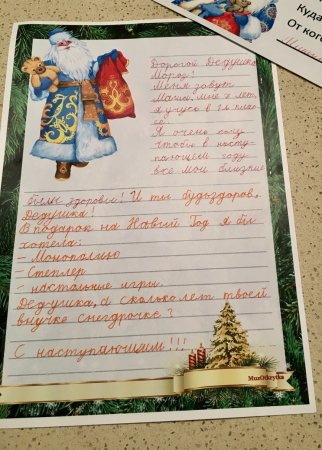 Куда
От кого
Дорогой Дедушка
Мороз!
Меня зовут
Маша, мне 7 лет,
я учусь в 1 клас-
се.
Я очень хочу
чтобы в насту-
пающем году
все мои близкие
были здоровы! И ты будь здоров,
Дедушка!
В подарок на Новый Год я бы
хотела:
- Монополию
- Степлер
- настольные игры.
Дедушка, а сколько лет твоей
внучке Снегурочке?
С наступающим!!!
MuzOtkrytka